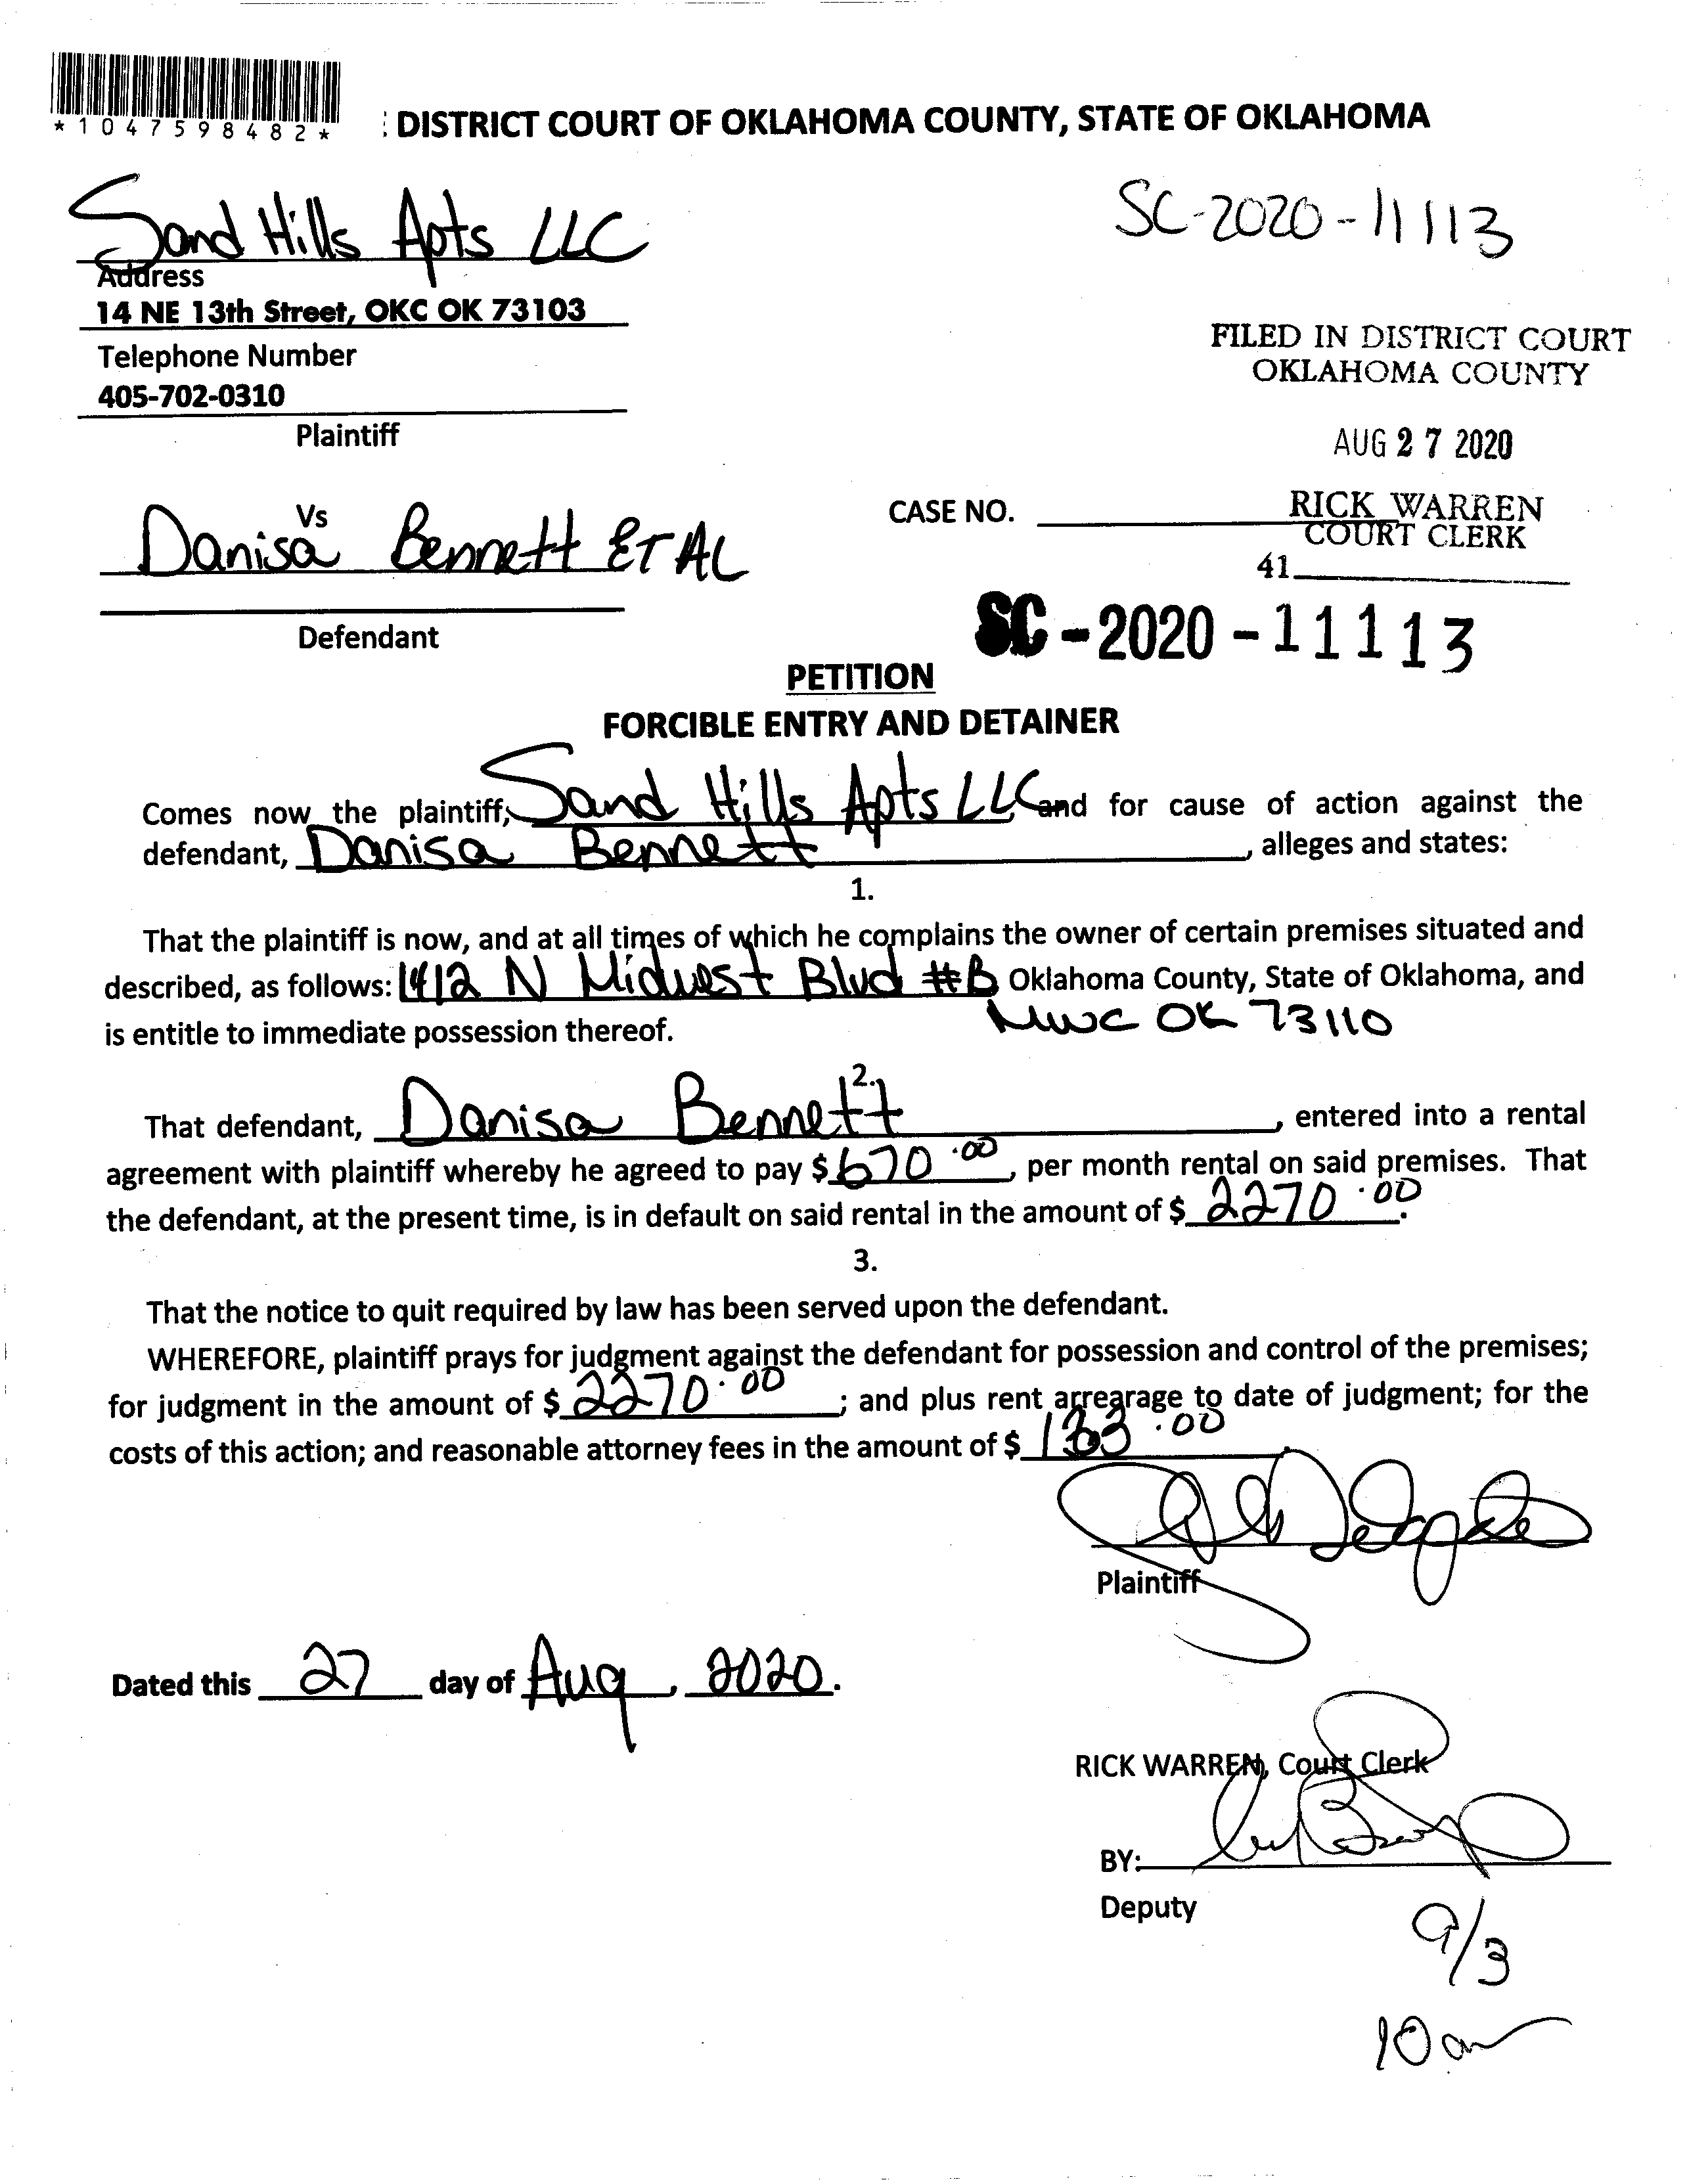 *1047598482*
: DISTRICT COURT OF OKLAHOMA COUNTY, STATE OF OKLAHOMA
Sand Hills Apts LLC
SC-2020-11113
Address
14 NE 13th Street, OKC OK 73103
FILED IN DISTRICT COURT
OKLAHOMA COUNTY
Telephone Number
405-702-0310
Plaintiff
AUG 27 2020
Vs
CASE NO.
RICK WARREN
COURT CLERK
Danisa Bennett ET AL
41
Defendant
SC-2020-11113
PETITION
FORCIBLE ENTRY AND DETAINER
Comes now the plaintiff, Sand Hills Apts LLC and for cause of action against the
defendant, Danisa Bennett, alleges and states:
1.
That the plaintiff is now, and at all times of which he complains the owner of certain premises situated and
described, as follows: 1412 N Midwest Blvd #B Oklahoma County, State of Oklahoma, and
is entitle to immediate possession thereof. MWC OK 73110
2.
That defendant, Danisa Bennett, entered into a rental
agreement with plaintiff whereby he agreed to pay $ 670.00, per month rental on said premises. That
the defendant, at the present time, is in default on said rental in the amount of $ 2270.00.
3.
That the notice to quit required by law has been served upon the defendant.
WHEREFORE, plaintiff prays for judgment against the defendant for possession and control of the premises;
for judgment in the amount of $ 2270.00; and plus rent arrearage to date of judgment; for the
costs of this action; and reasonable attorney fees in the amount of $ 133.00
Plaintiff
Dated this 27 day of Aug, 2020.
RICK WARREN, Court Clerk
BY:
Deputy
9/3
10 am